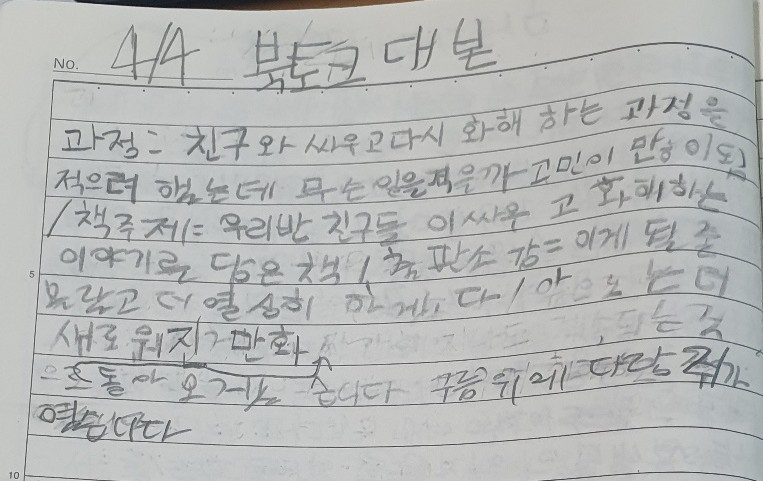 No. 4/4 북토크 대본
과정= 친구와 싸우고다시 화해 하는 과정을
적으려 했는데 무슨일을적을까 고민이 만이됨
/책주제= 우리반 친구들 이싸우 고 화해하는
이야기를 담은 책/출판소감= 이게 될 준
몰랐고 더 열심히 다/ 는 더
5
새로워진 만화
으로돌아 오겠습니다 구름위에 다람쥐가
였습니다
10